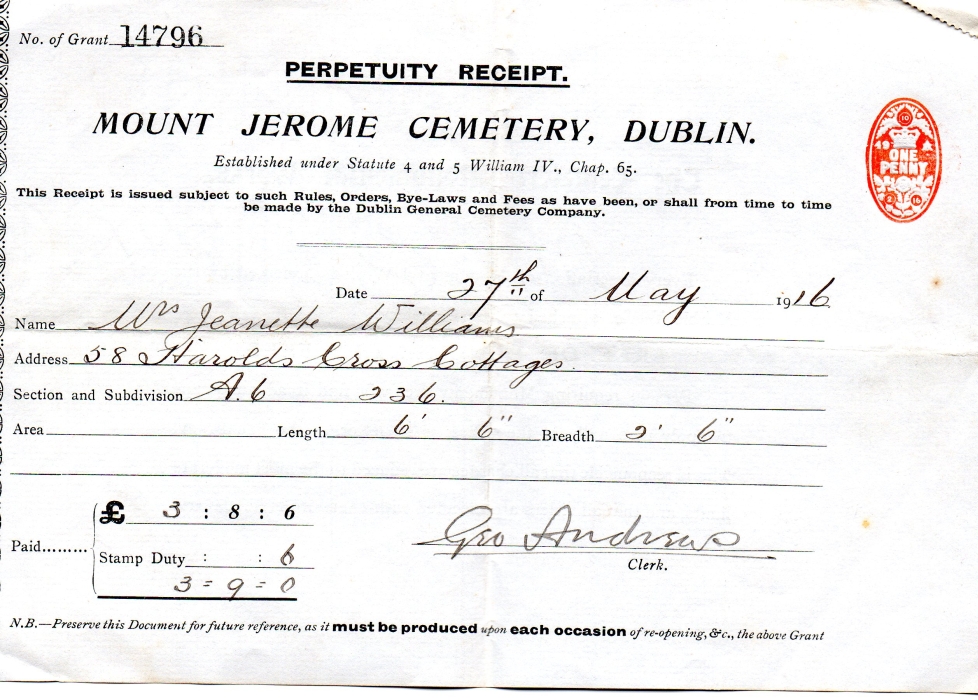 No. of Grant 14796
PERPETUITY RECEIPT.
MOUNT JEROME CEMETERY, DUBLIN.
Established under Statute 4 and 5 William IV., Chap. 65.
ONE
PENNY
This Receipt is issued subject to such Rules, Orders, Bye-Laws and Fees as have been, or shall from time to time
be made by the Dublin General Cemetery Company.
Date 27th of May 1916
Name Mrs Jeanette Williams
Address 58 Harolds Cross Cottages.
Section and Subdivision A.6 236.
Area Length 6' 6" Breadth 2' 6"
£ 3 : 8 : 6
Paid......... Stamp Duty : : 6
3 = 9 = 0
Geo Andrews
Clerk.
N.B.—Preserve this Document for future reference, as it must be produced upon each occasion of re-opening, &c., the above Grant